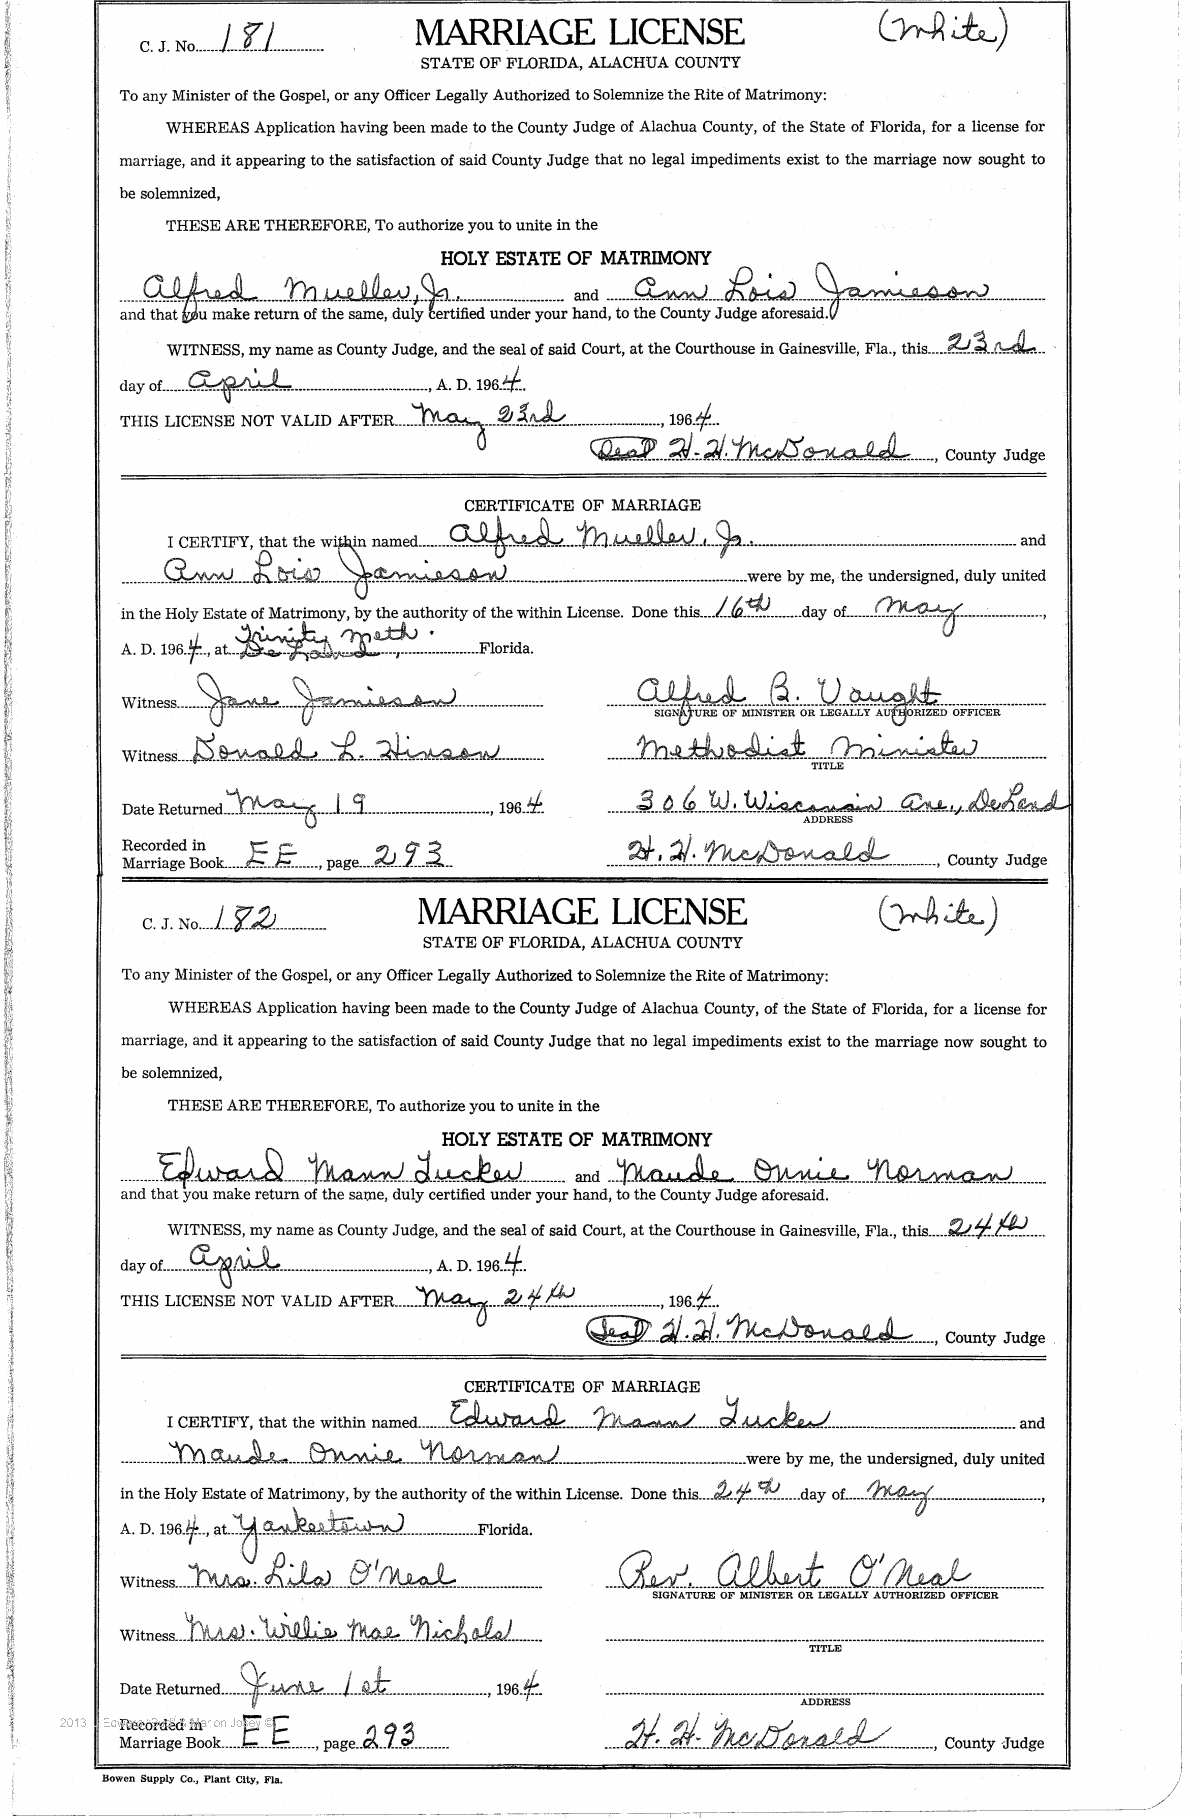 C. J. No. 181 MARRIAGE LICENSE (White)
STATE OF FLORIDA, ALACHUA COUNTY
To any Minister of the Gospel, or any Officer Legally Authorized to Solemnize the Rite of Matrimony:
WHEREAS Application having been made to the County Judge of Alachua County, of the State of Florida, for a license for
marriage, and it appearing to the satisfaction of said County Judge that no legal impediments exist to the marriage now sought to
be solemnized,
THESE ARE THEREFORE, To authorize you to unite in the
HOLY ESTATE OF MATRIMONY
Alfred Mueller, Jr. and Ann Lois Jamieson
and that you make return of the same, duly certified under your hand, to the County Judge aforesaid.
WITNESS, my name as County Judge, and the seal of said Court, at the Courthouse in Gainesville, Fla., this 23rd
day of April, A. D. 1964.
THIS LICENSE NOT VALID AFTER May 23rd, 1964.
Seal H. H. McDonald, County Judge
CERTIFICATE OF MARRIAGE
I CERTIFY, that the within named Alfred Mueller, Jr. and
Ann Lois Jamieson were by me, the undersigned, duly united
in the Holy Estate of Matrimony, by the authority of the within License. Done this 16th day of May,
Trinity Meth.
A. D. 1964, at De Land, Florida.
Witness Jane Jamieson Alfred B. Vaught
SIGNATURE OF MINISTER OR LEGALLY AUTHORIZED OFFICER
Witness Donald L. Hinson Methodist Minister
TITLE
Date Returned May 19, 1964 306 W. Wisconsin Ave., DeLand
ADDRESS
Recorded in
Marriage Book EE, page 293 H. H. McDonald, County Judge
C. J. No. 182 MARRIAGE LICENSE (White)
STATE OF FLORIDA, ALACHUA COUNTY
To any Minister of the Gospel, or any Officer Legally Authorized to Solemnize the Rite of Matrimony:
WHEREAS Application having been made to the County Judge of Alachua County, of the State of Florida, for a license for
marriage, and it appearing to the satisfaction of said County Judge that no legal impediments exist to the marriage now sought to
be solemnized,
THESE ARE THEREFORE, To authorize you to unite in the
HOLY ESTATE OF MATRIMONY
Edward Mann Tucker and Maude Onnie Norman
and that you make return of the same, duly certified under your hand, to the County Judge aforesaid.
WITNESS, my name as County Judge, and the seal of said Court, at the Courthouse in Gainesville, Fla., this 24th
day of April, A. D. 1964.
THIS LICENSE NOT VALID AFTER May 24th, 1964.
Seal H. H. McDonald, County Judge
CERTIFICATE OF MARRIAGE
I CERTIFY, that the within named Edward Mann Tucker and
Maude Onnie Norman were by me, the undersigned, duly united
in the Holy Estate of Matrimony, by the authority of the within License. Done this 24th day of May,
A. D. 1964, at Yankeetown Florida.
Witness Mrs. Lila O'Neal Rev. Albert O'Neal
SIGNATURE OF MINISTER OR LEGALLY AUTHORIZED OFFICER
Witness Mrs. Willie Mae Nichols
TITLE
Date Returned June 1st, 1964
ADDRESS
2013 Recorded in
Marriage Book EE, page 293 H. H. McDonald, County Judge
Bowen Supply Co., Plant City, Fla.